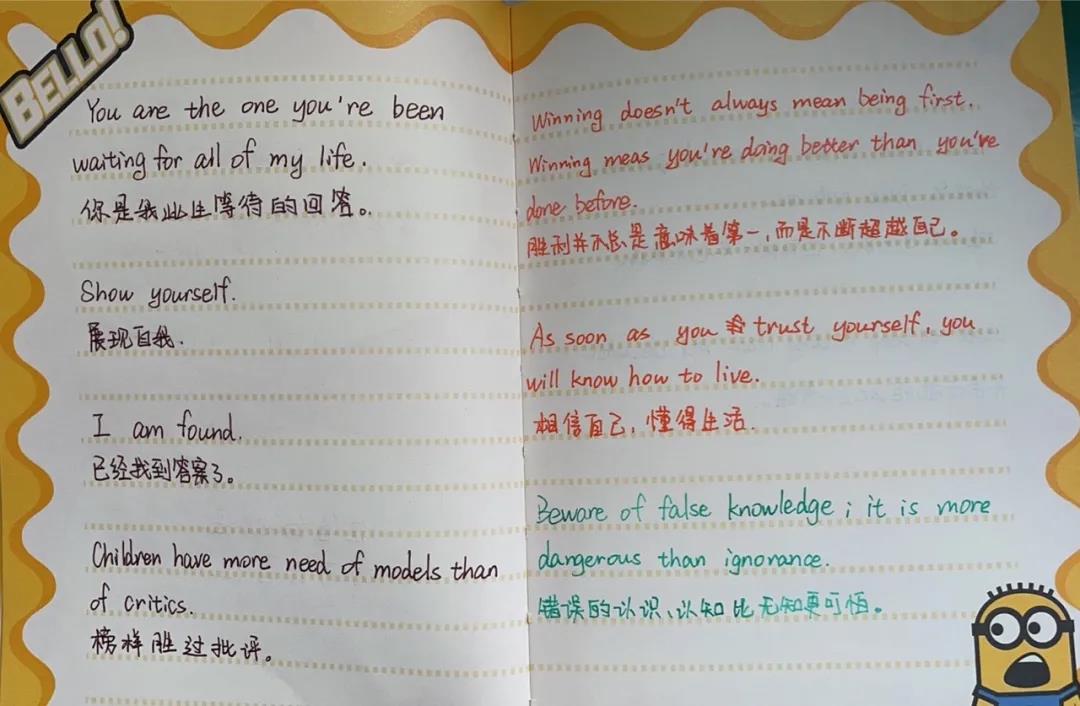 BELLO!
You are the one you're been
waiting for all of my life.
你是我此生等待的回答。
Show yourself.
展现自我.
I am found.
已经找到答案了。
Children have more need of models than
of critics.
榜样胜过批评。
Winning doesn't always mean being first.
Winning meas you're doing better than you've
done before.
胜利并不总是意味着第一,而是不断超越自己。
As soon as you trust yourself, you
will know how to live.
相信自己,懂得生活.
Beware of false knowledge; it is more
dangerous than ignorance.
错误的认识、认知比无知更可怕。